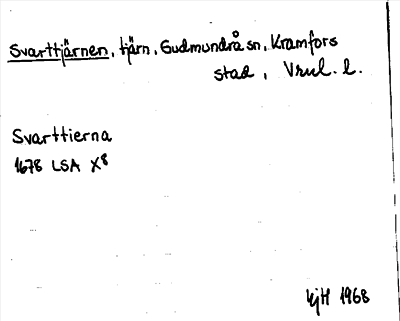 Svarttjärnen, tjärn, Gudmundrå sn, Kramfors
stad, Vrnl. l.
Svarttierna
1678 LSA X8
HjH 1968